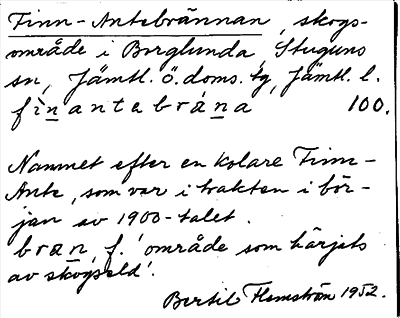 Finn-Antebrännan, skogs-
område i Borglunda, Stuguns
sn, Jämtl. ö. doms. tg, Jämtl. l.
fìnantebrána 100.
Namnet efter en kolare Finn-
Ante, som var i trakten i bör-
jan av 1900-talet.
bræn, f. 'område som härjats
av skogseld'.
Bertil Flemström 1952.